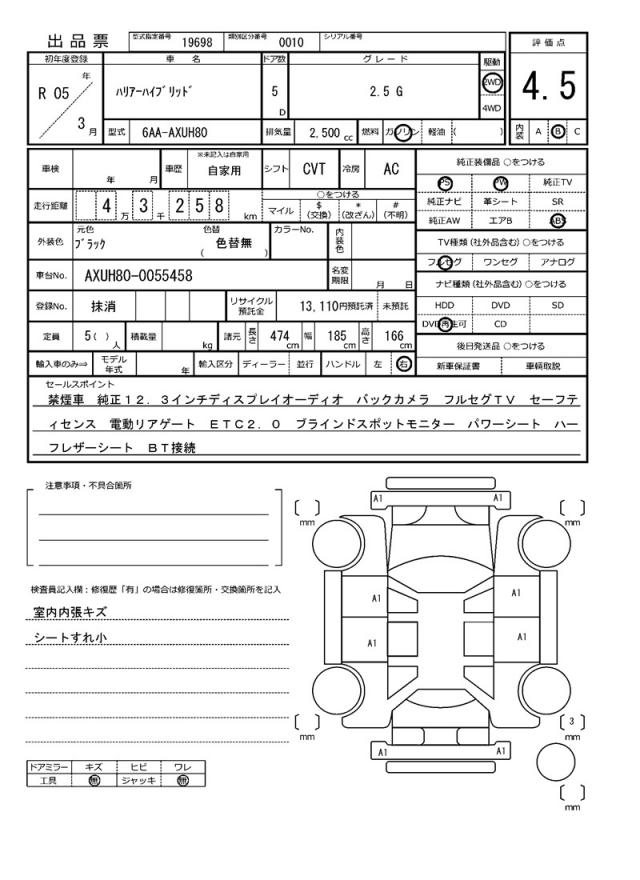 出品票 型式指定番号 19698 類別区分番号 0010 シリアル番号
評価点
4.5
内装 A B C
初年度登録 車名 ドア数 グレード 駆動
R 05 年 3 月 ﾊﾘｱｰﾊｲﾌﾞﾘｯﾄﾞ 5 D 2.5 G 2WD 4WD
型式 6AA-AXUH80 排気量 2,500 cc 燃料 ガソリン 軽油 ( )
車検 年 月 車歴 ※未記入は自家用 自家用 シフト CVT 冷房 AC
走行距離 4 万 3 千 2 5 8 km ○をつける
マイル $ (交換) * (改ざん) # (不明)
外装色 元色 ﾌﾞﾗｯｸ 色替 ( 色替無 ) カラーNo. 内装色
車台No. AXUH80-0055458 名変期限 月 日
登録No. 抹消 リサイクル預託金 13,110円預託済 未預託
定員 5 ( ) 人 積載量 kg 諸元 長さ 474 cm 幅 185 cm 高さ 166 cm
輸入車のみ⇒ モデル年式 年 輸入区分 ディーラー 並行 ハンドル 左 右
純正装備品 ○をつける
PS PW 純正TV
純正ナビ 革シート SR
純正AW エアB ABS
TV種類 (社外品含む) ○をつける
フルセグ ワンセグ アナログ
ナビ種類 (社外品含む) ○をつける
HDD DVD SD
DVD再生可 CD
後日発送品 ○をつける
新車保証書 車輌取説
セールスポイント
禁煙車 純正12.3インチディスプレイオーディオ バックカメラ フルセグTV セーフテ
ィセンス 電動リアゲート ETC2.0 ブラインドスポットモニター パワーシート ハー
フレザーシート BT接続
注意事項・不具合箇所
検査員記入欄：修復歴「有」の場合は修復箇所・交換箇所を記入
室内内張キズ
シートすれ小
ドアミラー キズ ヒビ ワレ
工具 無 ジャッキ 無
A1 A1
mm mm
A1 A1
A1 A1
3
mm mm
A1 A1
mm